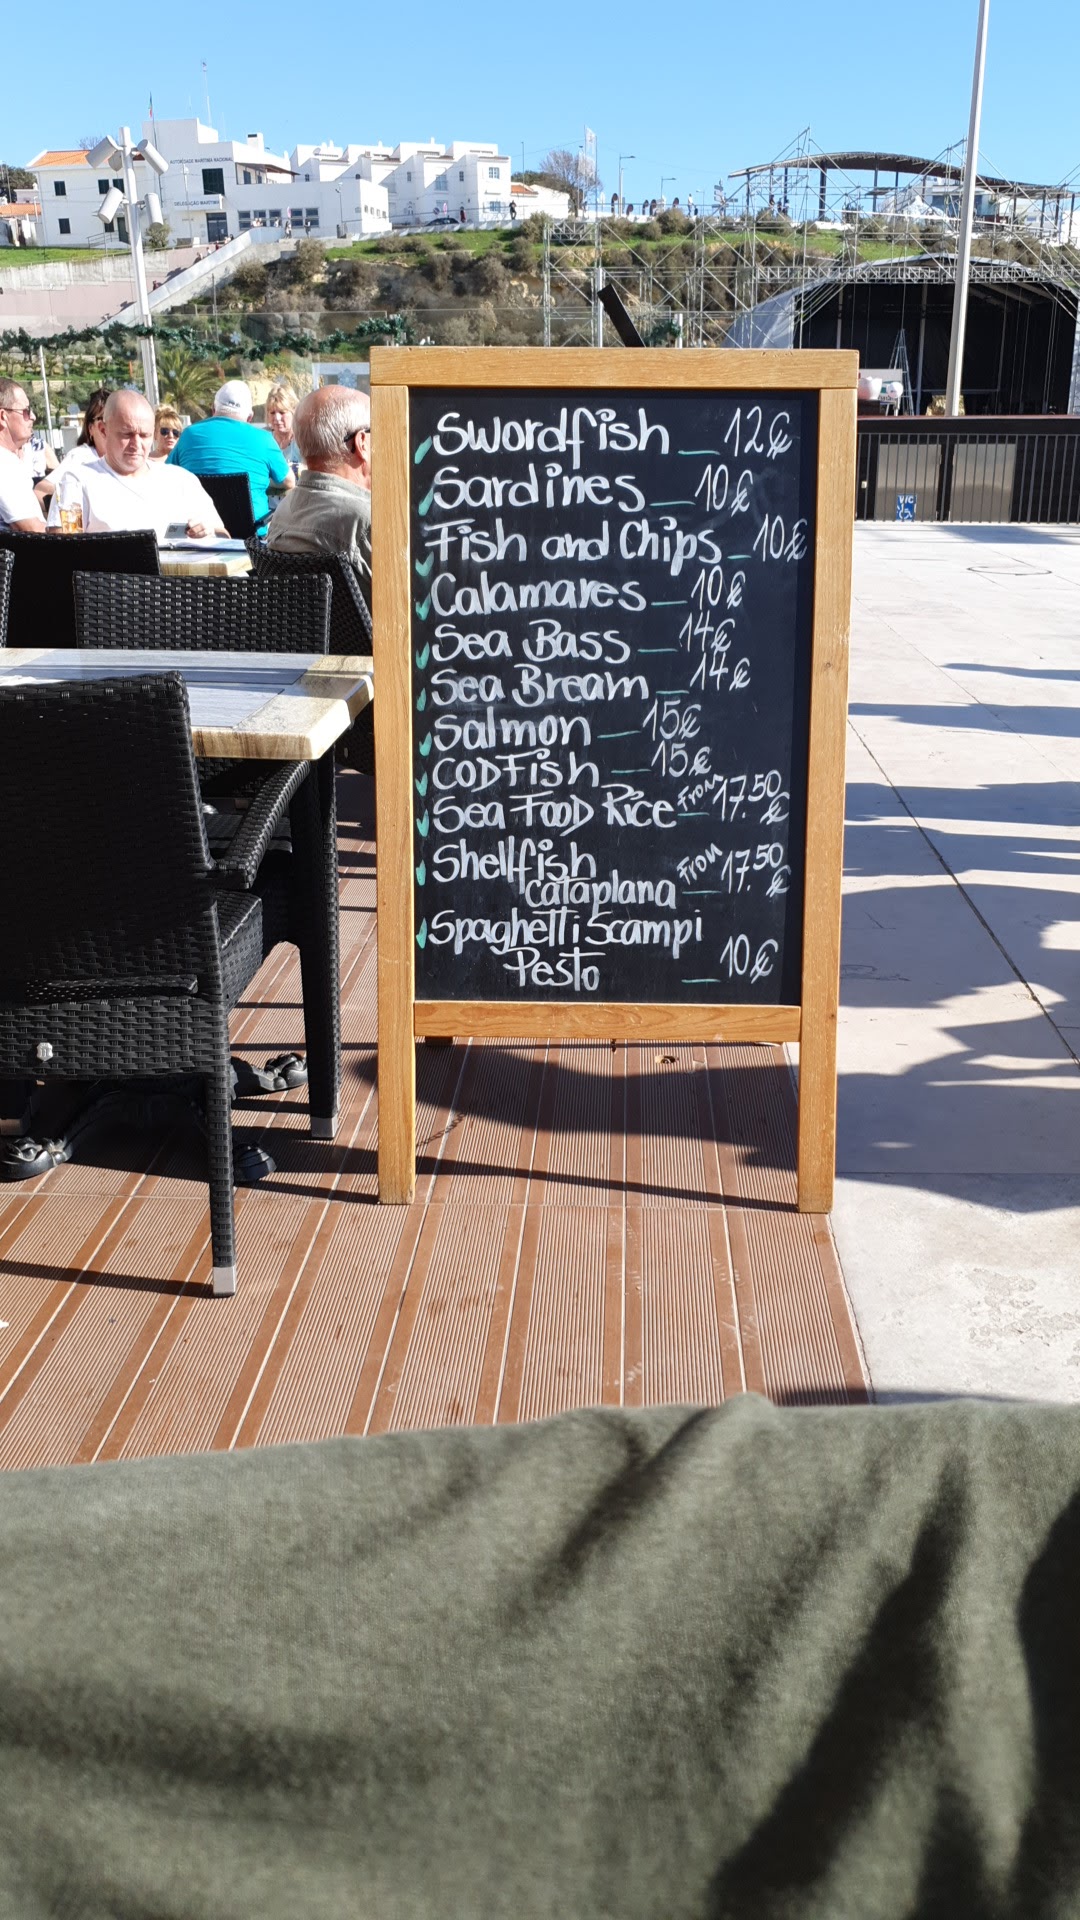 AUTORIDADE MARÍTIMA NACIONAL
DELEGAÇÃO MARÍTIMA
Swordfish _ 12€
Sardines _ 10€
Fish and Chips _ 10€
Calamares _ 10€
Sea Bass _ 14€
Sea Bream _ 14€
Salmon _ 15€
CODFish _ 15€
Sea FOOD Rice From 17.50 €
Shellfish
Cataplana From 17.50 €
Spaghetti Scampi
Pesto _ 10€
WC